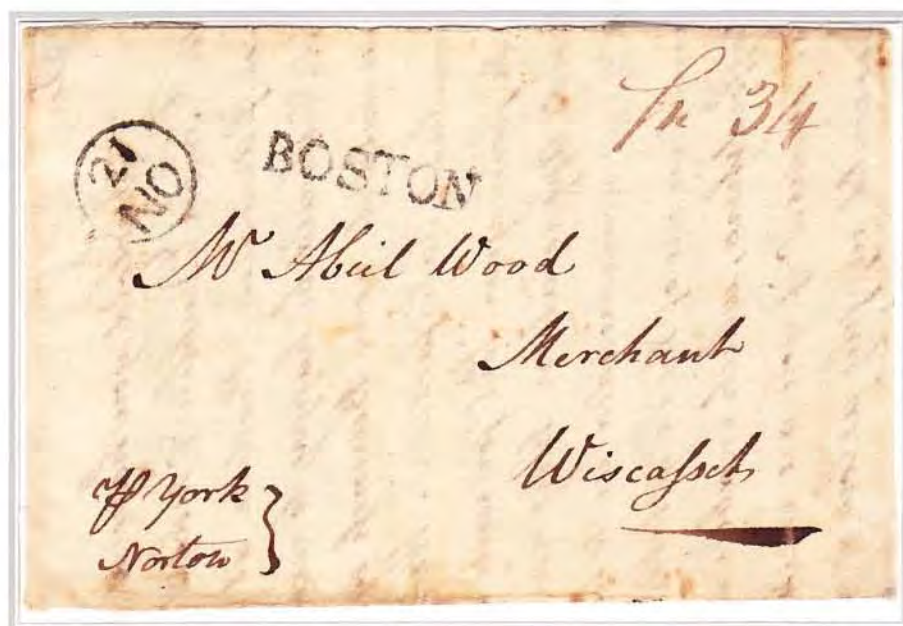 Sh 34
21
NO
BOSTON
Mr Abiel Wood
Merchant
Wiscaſset
York
Norton